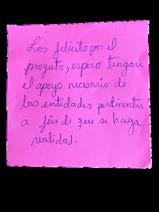 Los felicito por el
proyecto, espero tengan
el apoyo necesario de
las entidades pertinentes
a fin de que se haga
realidad.